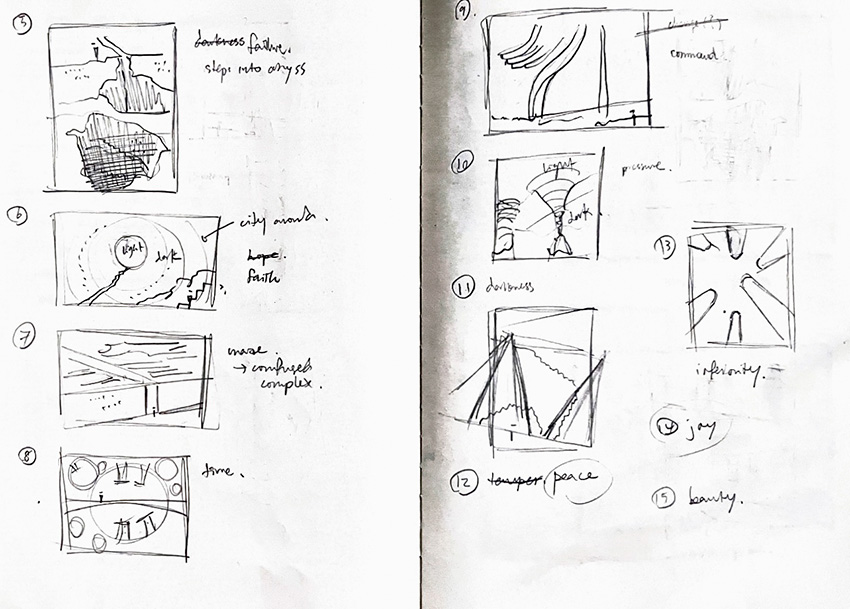 5
darkness failure.
step into abyss
6
light
dark
city
hope.
faith
7
maze.
→ confused
complex.
8
time.
9.
command.
10
light
dark.
pressure.
11
darkness
12
temper. peace
13
inferiority.
14 joy
15 beauty.